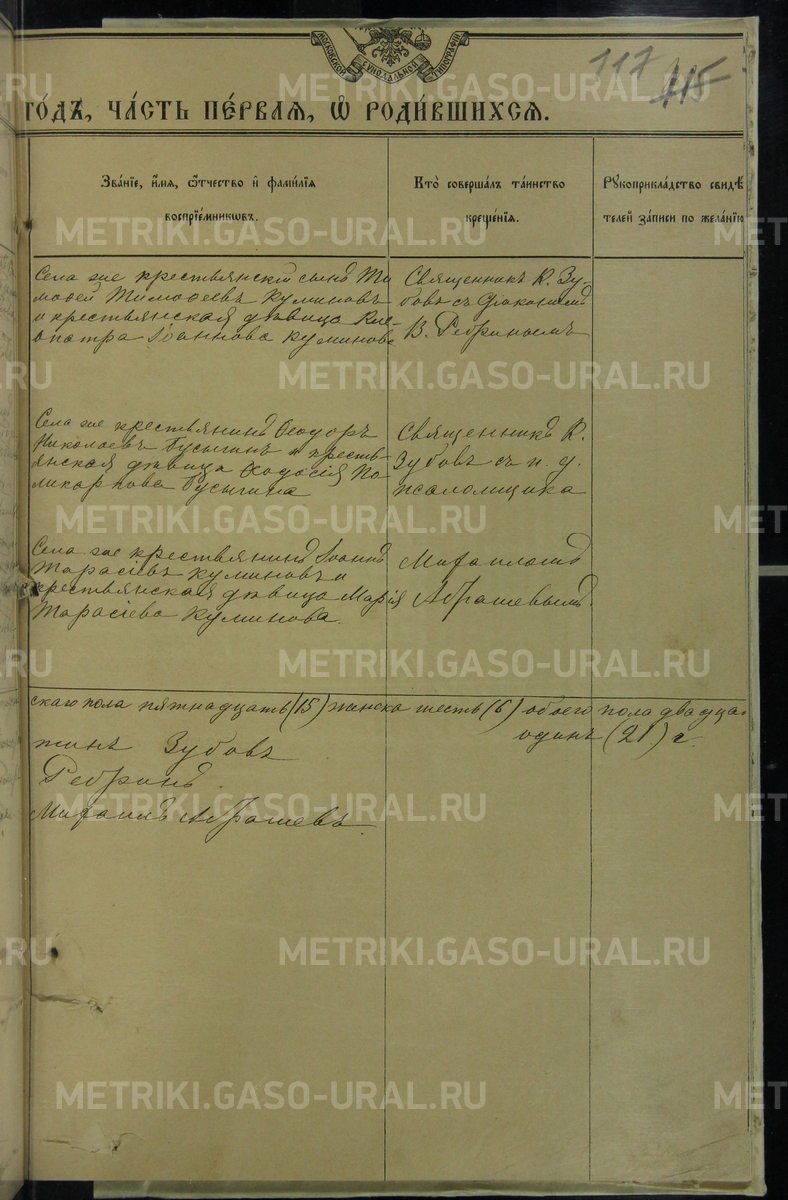 МОСКОВСКОЙ СѶНОДАЛЬНОЙ ТИПОГРАФІИ
117 115
ГО́ДЪ, ЧА́СТЬ ПЕ́РВАЯ, Ѽ РОДИ́ВШИХСЯ.
Зва́нїе, и́мя, ѻ҆́тчество и҆ фами́лїя
воспрїе́мниковъ.
Кто̀ соверша́лъ та́инство
креще́нїя.
Рꙋкоприкла́дство свидѣ́
телей за́писи по жела́нїю
Села сіе крестьянскій сынъ Ти
моѳей Тимоѳеевъ Куминовъ
и крестьянская дѣвица Кле-
опатра Іоаннова Куминова
Священникъ К. Зу-
бовъ съ діакономъ
В. Ребринымъ
Села сіе крестьянинъ Ѳеодоръ
Николаевъ Бусыгинъ и кресть-
янская дѣвица Ѳеодосія По
ликарпова Бусыгина
Священникъ К.
Зубовъ съ и. д.
псаломщика
Села сіе крестьянинъ Іоаннъ
Тарасіевъ Куминовъ и
крестьянская дѣвица Марія
Тарасіева Куминова.
Михаиломъ
Абрашевымъ.
скаго пола пятнадцать (15) женска шесть (6) обоего пола двадца-
одинъ (21) ч.
Зубовъ
Ребринъ.
Михаилъ Абрашевъ
METRIKI.GASO-URAL.RU